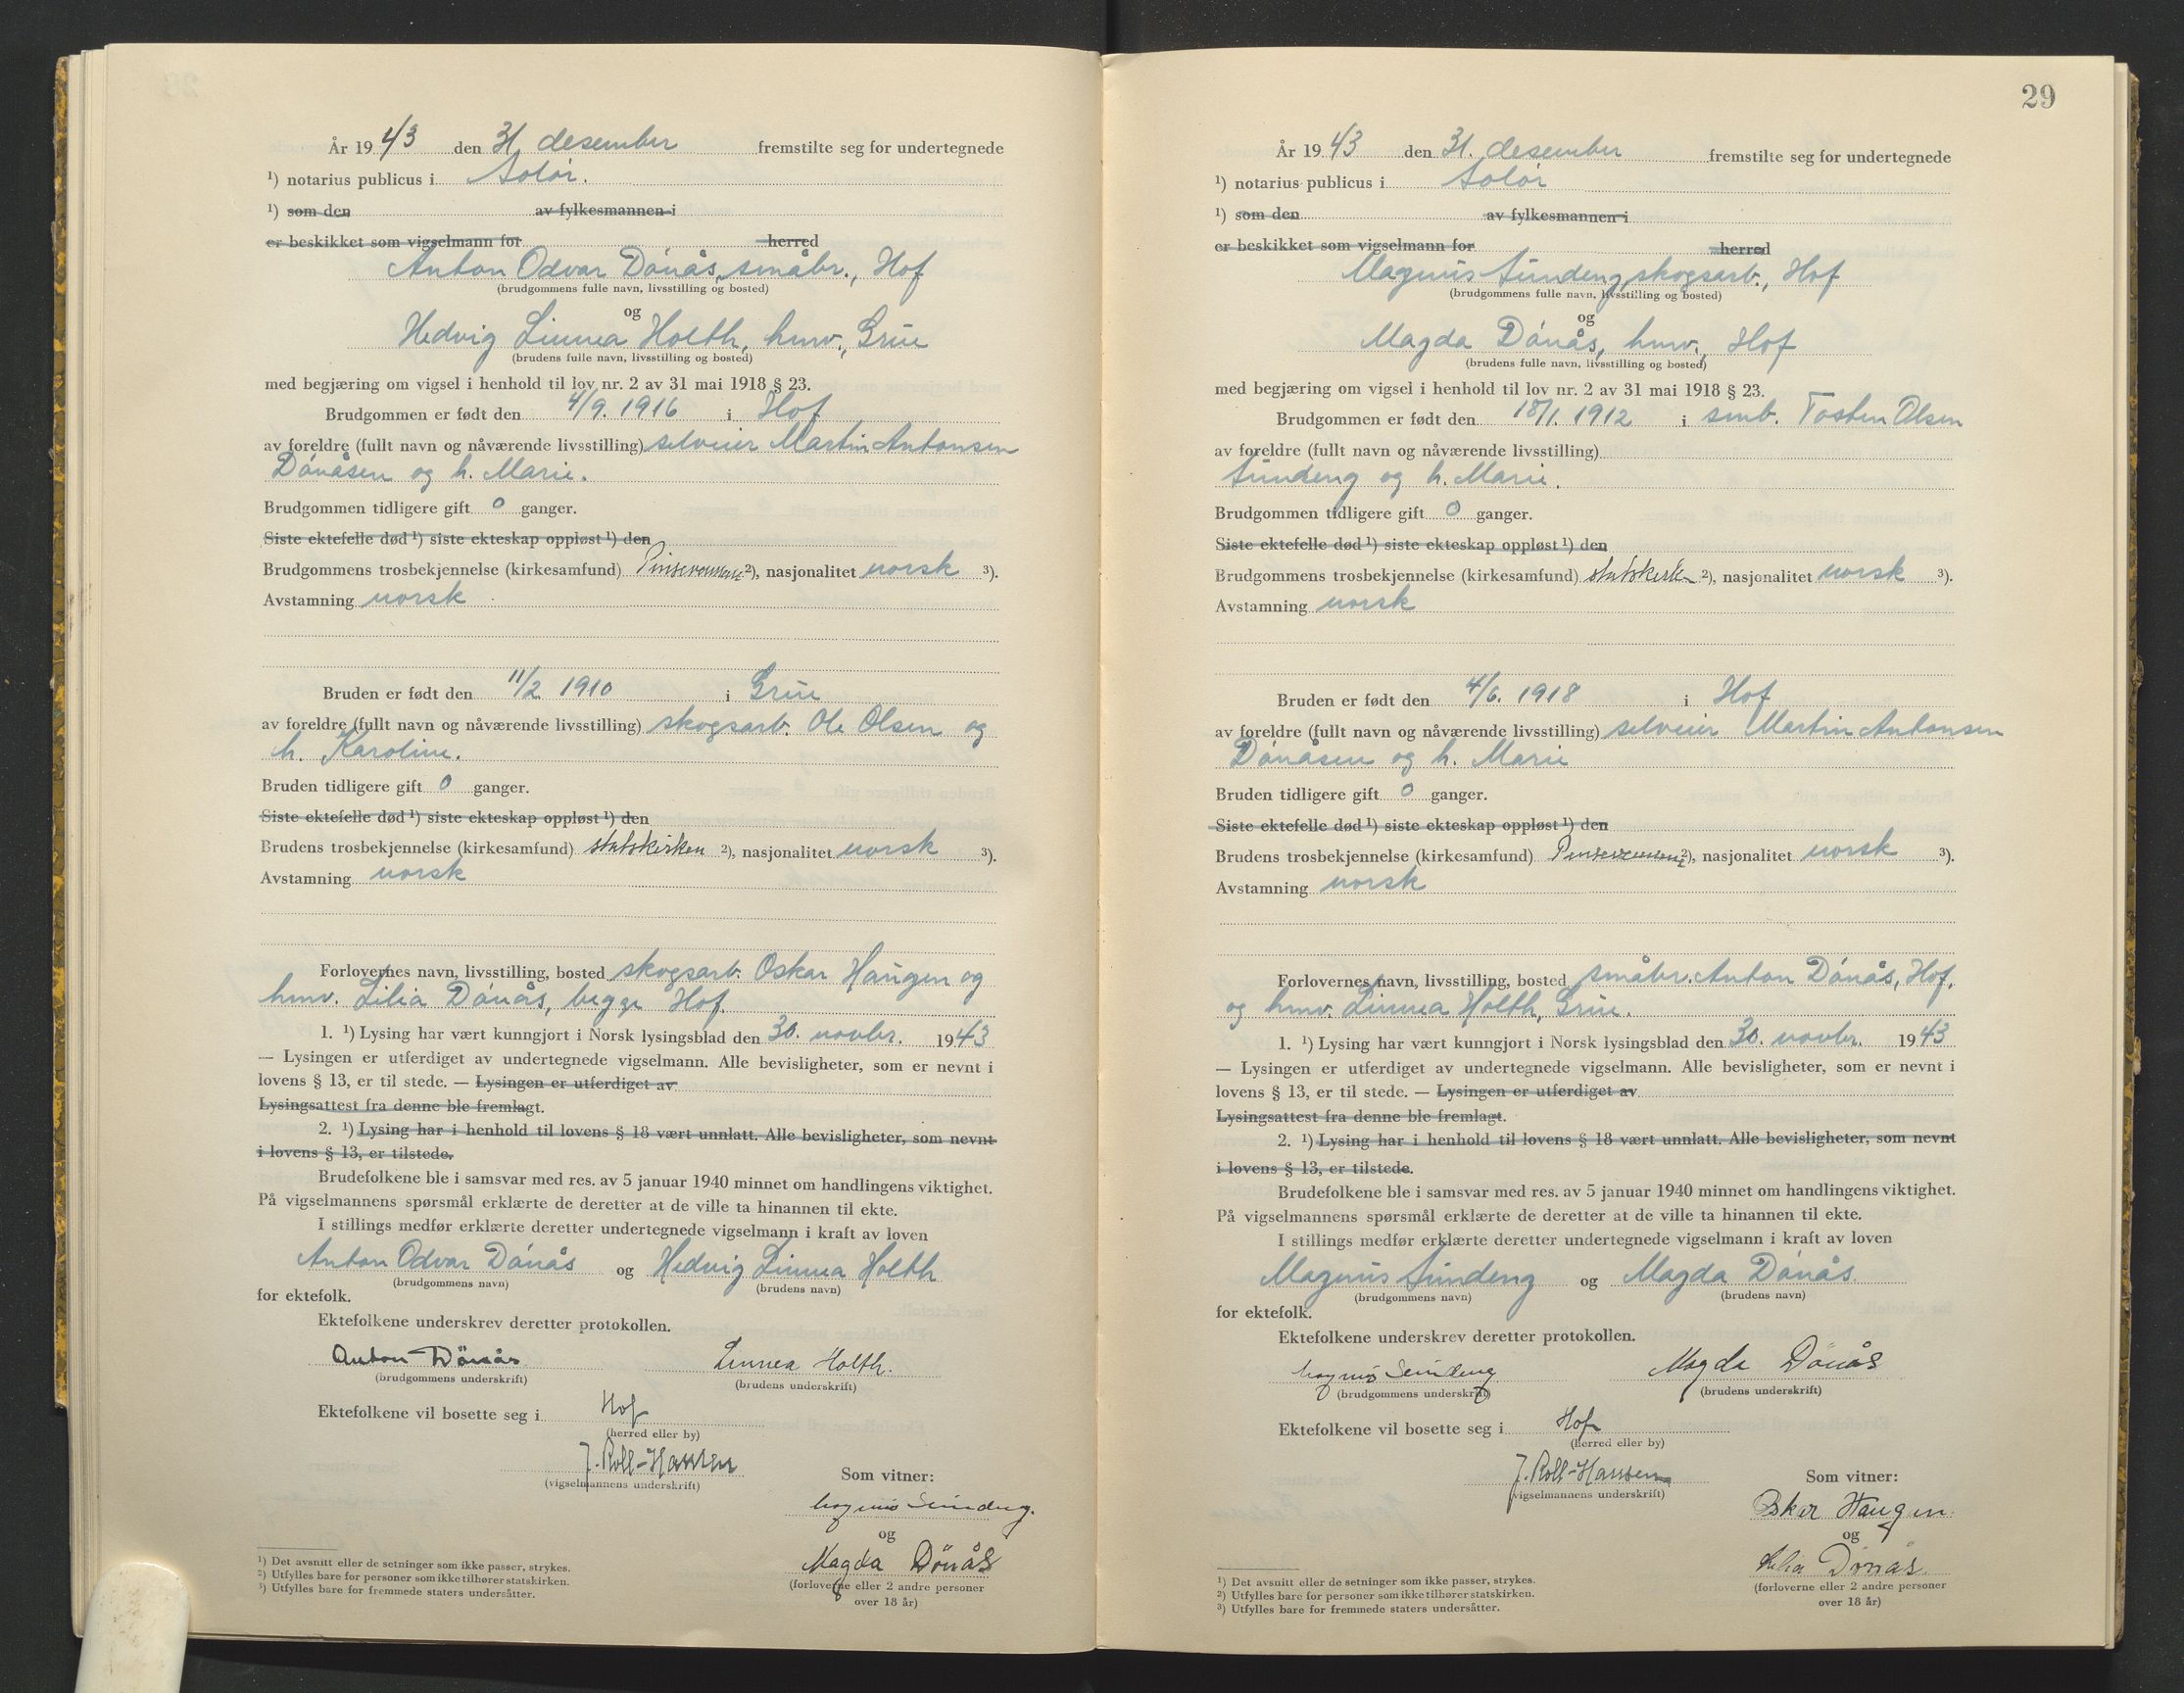 År 1943 den 31 desember fremstilte seg for undertegnede
¹) notarius publicus i Solør.
¹) som den av fylkesmannen i
er beskikket som vigselmann for herred
Anton Odvar Dónås, småbr., Hof
(brudgommens fulle navn, livsstilling og bosted)
og
Hedvig Linnea Holth, hmv., Grue
(brudens fulle navn, livsstilling og bosted)
med begjæring om vigsel i henhold til lov nr. 2 av 31 mai 1918 § 23.
Brudgommen er født den 4/9. 1916 i Hof
av foreldre (fullt navn og nåværende livsstilling) selveier Martin Antonsen
Dónåsen og h. Marie.
Brudgommen tidligere gift 0 ganger.
Siste ektefelle død ¹) siste ekteskap oppløst ¹) den
Brudgommens trosbekjennelse (kirkesamfund) ²), nasjonalitet norsk ³).
Avstamning norsk
Bruden er født den 11/2 1910 i Grue
av foreldre (fullt navn og nåværende livsstilling) skogsarb. Ole Olsen og
h. Karoline.
Bruden tidligere gift 0 ganger.
Siste ektefelle død ¹) siste ekteskap oppløst ¹) den
Brudens trosbekjennelse (kirkesamfund) statskirken ²), nasjonalitet norsk ³).
Avstamning norsk
Forlovernes navn, livsstilling, bosted skogsarb. Oskar Haugen og
hmv. Lilia Dónås, begge Hof.
1. ¹) Lysing har vært kunngjort i Norsk lysingsblad den 30. novbr. 1943
— Lysingen er utferdiget av undertegnede vigselmann. Alle bevisligheter, som er nevnt i
lovens § 13, er til stede. — Lysingen er utferdiget av
Lysingsattest fra denne ble fremlagt.
2. ¹) Lysing har i henhold til lovens § 18 vært unnlatt. Alle bevisligheter, som nevnt
i lovens § 13, er tilstede.
Brudefolkene ble i samsvar med res. av 5 januar 1940 minnet om handlingens viktighet.
På vigselmannens spørsmål erklærte de deretter at de ville ta hinannen til ekte.
I stillings medfør erklærte deretter undertegnede vigselmann i kraft av loven
Anton Odvar Dónås og Hedvig Linnea Holth
(brudgommens navn) (brudens navn)
for ektefolk.
Ektefolkene underskrev deretter protokollen.
Anton Dönås Linnea Holth.
(brudgommens underskrift) (brudens underskrift)
Ektefolkene vil bosette seg i Hof
(herred eller by)
J. Roll-Hansen
(vigselmannens underskrift)
Som vitner:
Magnus Sundeng.
og
Magda Dönås
(forloverne eller 2 andre personer
over 18 år)
¹) Det avsnitt eller de setninger som ikke passer, strykes.
²) Utfylles bare for personer som ikke tilhører statskirken.
³) Utfylles bare for fremmede staters undersåtter.
29
År 1943 den 31. desember fremstilte seg for undertegnede
¹) notarius publicus i Solør
¹) som den av fylkesmannen i
er beskikket som vigselmann for herred
Magnus Sundeng, skogsarb., Hof
(brudgommens fulle navn, livsstilling og bosted)
og
Magda Dónås, hmv., Hof
(brudens fulle navn, livsstilling og bosted)
med begjæring om vigsel i henhold til lov nr. 2 av 31 mai 1918 § 23.
Brudgommen er født den 18/1. 1912 i smb. Tosten Olsen
av foreldre (fullt navn og nåværende livsstilling)
Sundeng og h. Marie.
Brudgommen tidligere gift 0 ganger.
Siste ektefelle død ¹) siste ekteskap oppløst ¹) den
Brudgommens trosbekjennelse (kirkesamfund) statskirken ²), nasjonalitet norsk ³).
Avstamning norsk
Bruden er født den 4/6. 1918 i Hof
av foreldre (fullt navn og nåværende livsstilling) selveier Martin Antonsen
Dónåsen og h. Marie
Bruden tidligere gift 0 ganger.
Siste ektefelle død ¹) siste ekteskap oppløst ¹) den
Brudens trosbekjennelse (kirkesamfund) ²), nasjonalitet norsk ³).
Avstamning norsk
Forlovernes navn, livsstilling, bosted småbr. Anton Dónås, Hof,
og hmv. Linnea Holth, Grue.
1. ¹) Lysing har vært kunngjort i Norsk lysingsblad den 30. novbr. 1943
— Lysingen er utferdiget av undertegnede vigselmann. Alle bevisligheter, som er nevnt i
lovens § 13, er til stede. — Lysingen er utferdiget av
Lysingsattest fra denne ble fremlagt.
2. ¹) Lysing har i henhold til lovens § 18 vært unnlatt. Alle bevisligheter, som nevnt
i lovens § 13, er tilstede.
Brudefolkene ble i samsvar med res. av 5 januar 1940 minnet om handlingens viktighet.
På vigselmannens spørsmål erklærte de deretter at de ville ta hinannen til ekte.
I stillings medfør erklærte deretter undertegnede vigselmann i kraft av loven
Magnus Sundeng og Magda Dónås
(brudgommens navn) (brudens navn)
for ektefolk.
Ektefolkene underskrev deretter protokollen.
Magnus Sundeng Magda Dönås
(brudgommens underskrift) (brudens underskrift)
Ektefolkene vil bosette seg i Hof
(herred eller by)
J. Roll-Hansen
(vigselmannens underskrift)
Som vitner:
Oskar Haugen
og
Lilia Dönås.
(forloverne eller 2 andre personer
over 18 år)
¹) Det avsnitt eller de setninger som ikke passer, strykes.
²) Utfylles bare for personer som ikke tilhører statskirken.
³) Utfylles bare for fremmede staters undersåtter.